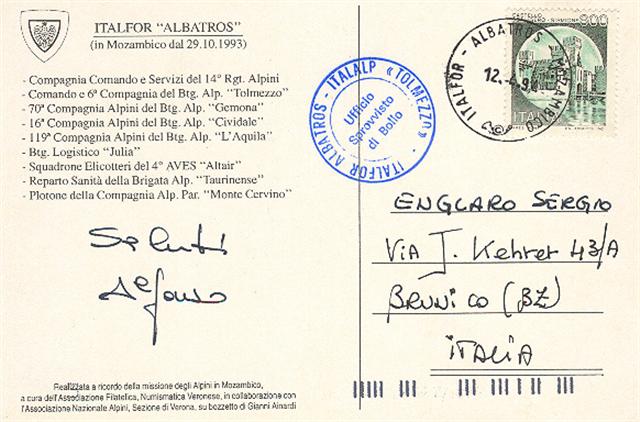 ITALFOR "ALBATROS"
(in Mozambico dal 29.10.1993)
- Compagnia Comando e Servizi del 14° Rgt. Alpini
- Comando e 6ª Compagnia del Btg. Alp. "Tolmezzo"
- 70ª Compagnia Alpini del Btg. Alp. "Gemona"
- 16ª Compagnia Alpini del Btg. Alp. "Cividale"
- 119ª Compagnia Alpini del Btg. Alp. "L'Aquila"
- Btg. Logistico "Julia"
- Squadrone Elicotteri del 4° AVES "Altair"
- Reparto Sanità della Brigata Alp. "Taurinense"
- Plotone della Compagnia Alp. Par. "Monte Cervino"
Saluti
Alfonso
Realizzata a ricordo della missione degli Alpini in Mozambico,
a cura dell'Associazione Filatelica, Numismatica Veronese, in collaborazione con
l'Associazione Nazionale Alpini, Sezione di Verona, su bozzetto di Gianni Ainardi
ITALFOR ALBATROS - ITALALP «TOLMEZZO» -
Ufficio
Sprovvisto
di Bollo
ITALFOR - ALBATROS
MOZAMBICO
12.4.94
CASTELLO
SIRMIONE
800
ITALIA
ENGLARO SERGIO
VIA J. Kehrer 43/A
BRUNICO (BZ)
ITALIA